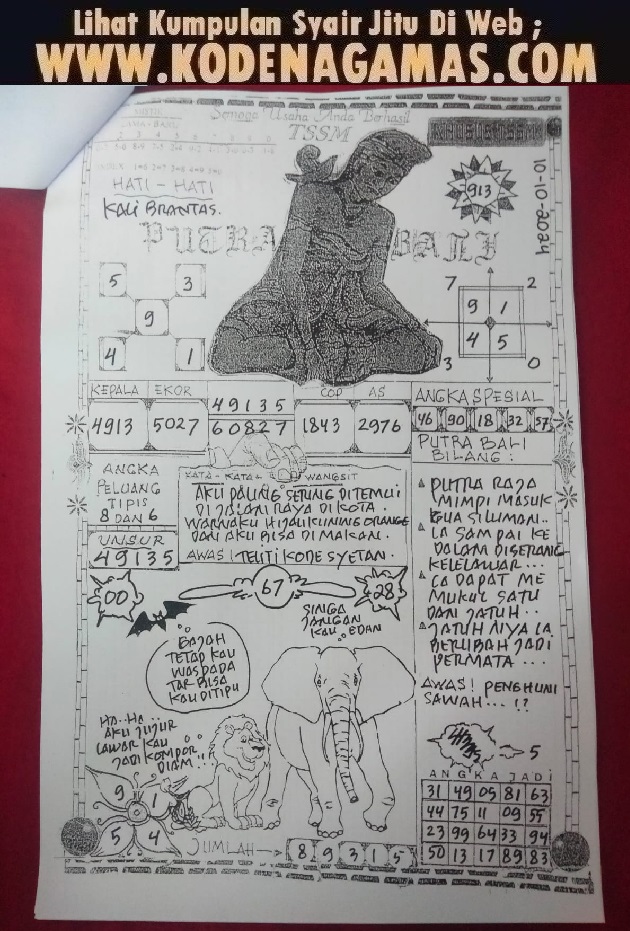 Lihat Kumpulan Syair Jitu Di Web ;
WWW.KODENAGAMAS.COM
Semoga Usaha Anda Berhasil
TSSM
913
10-10-2024
HATI - HATI
KALI BRANTAS.
PUTRA BALI
5 3
9
4 1
7 2
9 1
4 5
3 0
KEPALA EKOR
4913 5027
49135
60827
COP AS
1843 2976
ANGKA SPESIAL
46 90 18 32 57
PUTRA BALI
BILANG :
ANGKA
PELUANG
TIPIS
8 DAN 6
UNSUR
49135
KATA - KATA WANGSIT
AKU PALING SERING DITEMUI
DI JALAN RAYA DI KOTA.
WARNAKU HIJAU KUNING ORANGE
DAN AKU BISA DIMAKAN.
AWAS! TELITI KODE SYETAN.
PUTRA RAJA
MIMPI MASUK
GUA SILUMAN..
IA SAMPAI KE
DALAM DISERANG
KELELAWAR...
IA DAPAT ME
MUKUL SATU
DAN JATUH..
JATUHNYA IA
BERUBAH JADI
PERMATA...
AWAS! PENGHUNI
SAWAH...!?
00
67
28
SINGA
JANGAN
KAU EDAN
GAJAH
TETAP KAU
WASPADA
TAR BISA
KAU DITIPU
HA..HA..
AKU JUJUR
LAWAR KAU
JADI KOMPOR
DIAM!!
5
9 1
5 4
JUMLAH
8 9 3 1 5
ANGKA JADI
31 49 05 81 63
44 75 11 09 55
23 99 64 33 94
50 13 17 89 83